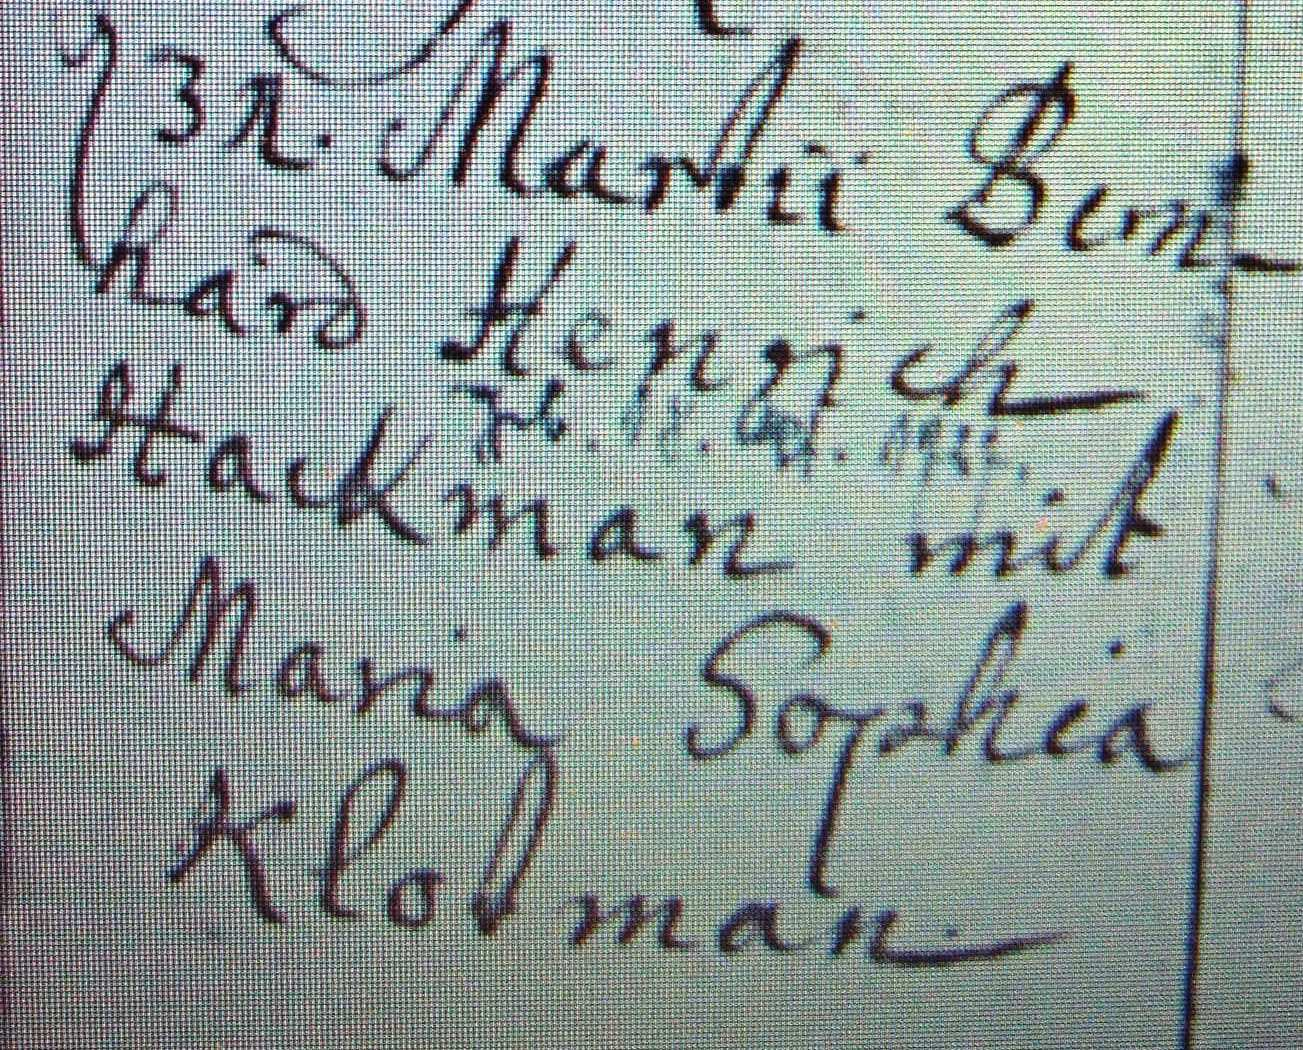 3 x. Martii Bern
hard Henrich
Hackman mit
Maria Sophia
Klodman